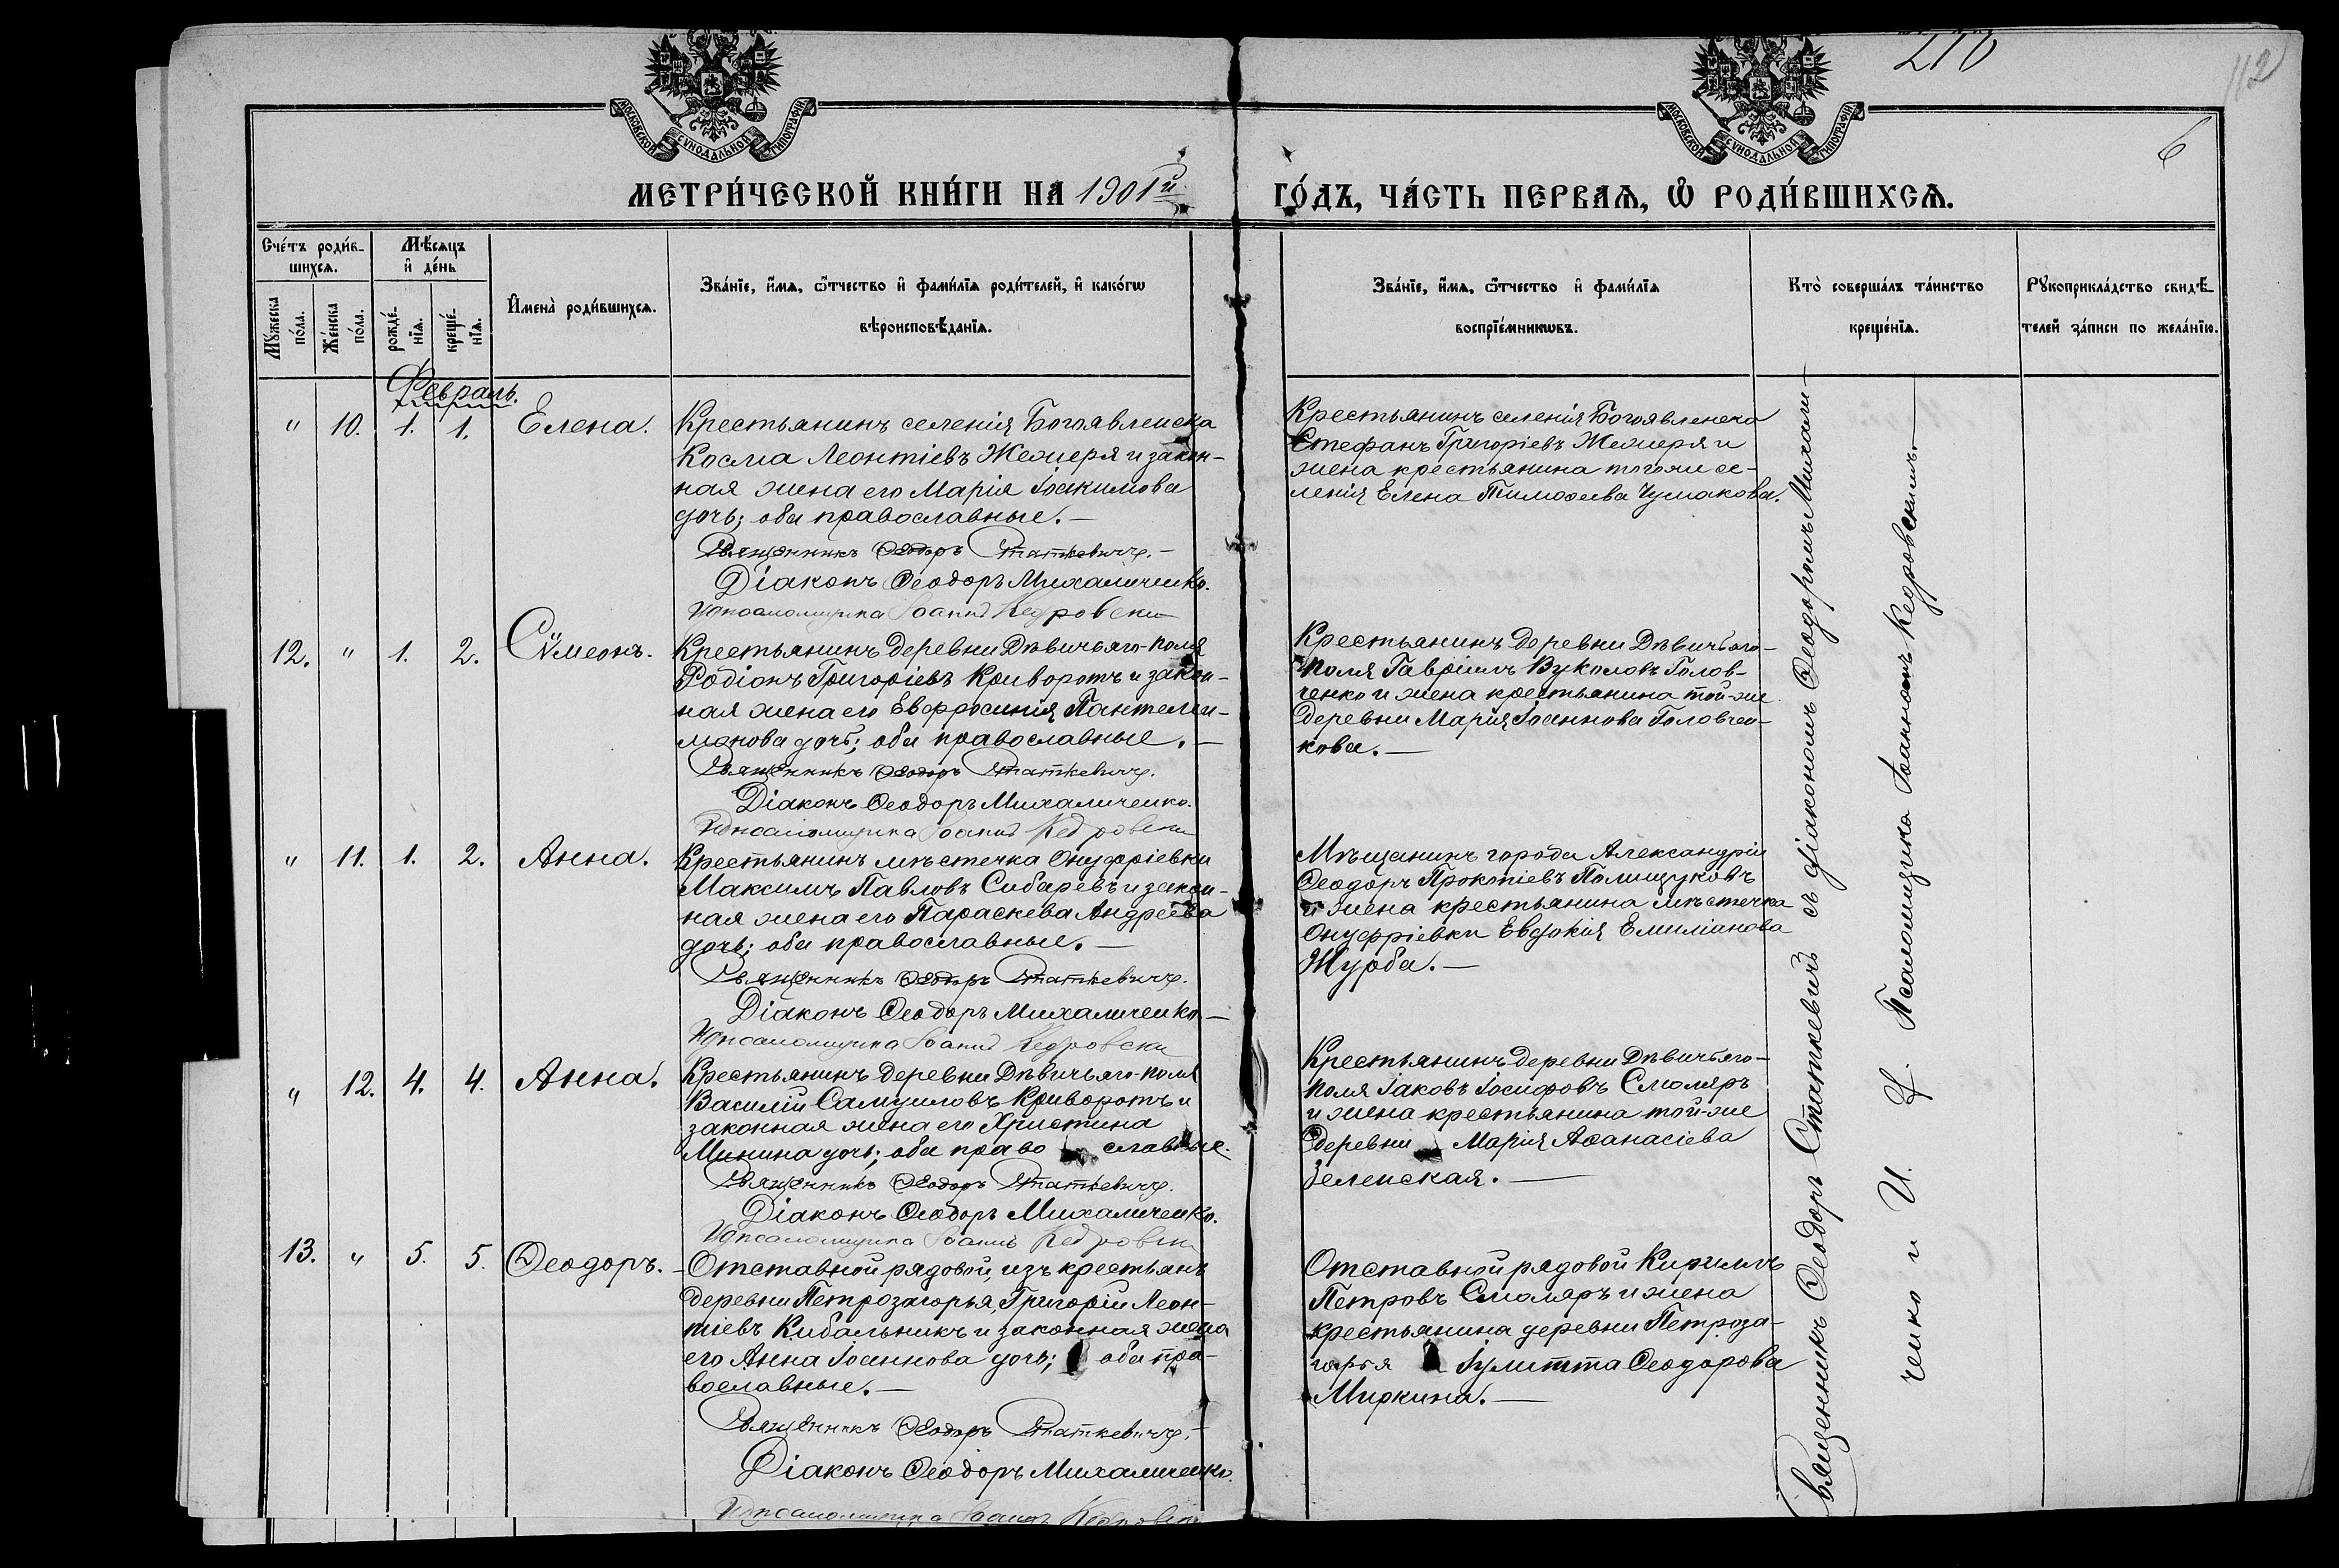 МОСКОВСКОЙ СѴНОДАЛЬНОЙ ТИПОГРАФІИ
МОСКОВСКОЙ СѴНОДАЛЬНОЙ ТИПОГРАФІИ
112
6
МЕТРИ́ЧЕСКОЙ КНИ́ГИ НА 1901й
ГО́ДЪ, ЧА́СТЬ ПЕРВАѦ, Ѡ РОДИ́ВШИХСѦ.
Сче́тъ роди́в-
шихсѧ.
Мѣ́сѧцъ
и де́нь
Му́жеска
по́ла.
Же́нска
по́ла.
рожде́-
нїѧ.
креще́-
нїѧ.
Имена̀ роди́вшихсѧ.
Зва́нїе, и́мѧ, ѻ́тчество и фами́лїѧ роди́телей, и како́гѡ
вѣроисповѣ́данїѧ.
Зва́нїе, и́мѧ, ѻ́тчество и фами́лїѧ
воспрїе́мникѡвъ.
Кто̀ соверша́лъ та́инство
креще́нїѧ.
Рꙋкоприкла́дство свидѣ́-
телей за́писи по жела́нїю.
Февраль.
" 10. 1. 1. Елена.
Крестьянинъ селенія Богоявленска
Косма Леонтіевъ Жемеря и закон-
ная жена его Марія Іоакимова
дочь; оба православные.—
Священникъ Ѳеодоръ Статкевичъ.—
Діаконъ Ѳеодоръ Михаличенко.
И д псаломщика Іоаннъ Кедровски
Крестьянинъ селенія Богоявленска
Стефанъ Григоріевъ Жемеря и
жена крестьянина тогоже се-
ленія Елена Тимоѳеева Чумакова.
12. " 1. 2. Сѵмеонъ.
Крестьянинъ деревни Дѣвичьяго-поля
Родіонъ Григоріевъ Криворотъ и закон-
ная жена его Евфросинія Пантелеи-
монова дочь; оба православные.—
Священникъ Ѳеодоръ Статкевичъ.
Діаконъ Ѳеодоръ Михаличенко.
И д псаломщика Іоаннъ Кедровски
Крестьянинъ деревни Дѣвичьяго-
поля Гавріилъ Вуколовъ Голов-
ченко и жена крестьянина той-же
деревни Марія Іоаннова Головчен-
кова.—
" 11. 1. 2. Анна.
Крестьянинъ мѣстечка Онуфріевки
Максимъ Павловъ Сибаревъ и закон-
ная жена его Параскева Андреева
дочь; оба православные.—
Священникъ Ѳеодоръ Статкевичъ.
Діаконъ Ѳеодоръ Михаличенко.—
И д псаломщика Іоаннъ Кедровски
Мѣщанинъ города Александріи
Ѳеодоръ Прокопіевъ Полищуковъ
и жена крестьянина мѣстечка
Онуфріевки Евдокія Емиліанова
Журба.—
" 12. 4. 4. Анна.
Крестьянинъ деревни Дѣвичьяго-поля
Василій Самуиловъ Криворотъ и
законная жена его Христина
Минина дочь; оба право славные.
Священникъ Ѳеодоръ Статкевичъ.
Діаконъ Ѳеодоръ Михаличенко.
И д псаломщика Іоаннъ Кедровски
Крестьянинъ деревни Дѣвичьяго-
поля Іаковъ Іосифовъ Смоляръ
и жена крестьянина той-же
деревни Марія Аѳанасіева
Зеленская.—
13. " 5. 5. Ѳеодоръ.
Отставной рядовой, изъ крестьянъ
деревни Петрозагорья, Григорій Леон-
тіевъ Кибальникъ и законная жена
его Анна Іоаннова дочь; оба пра-
вославные.—
Священникъ Ѳеодоръ Статкевичъ.—
Діаконъ Ѳеодоръ Михаличенко.
И д псаломщика Іоаннъ Кедровски
Отставной рядовой Кириллъ
Петровъ Смоляръ и жена
крестьянина деревни Петроза-
горья Іулитта Ѳеодорова
Миркина.—
Священникъ Ѳеодоръ Статкевичъ съ діакономъ Ѳеодоромъ Михали-
ченко и И. д. Псаломщика Іоанномъ Кедровскимъ.—